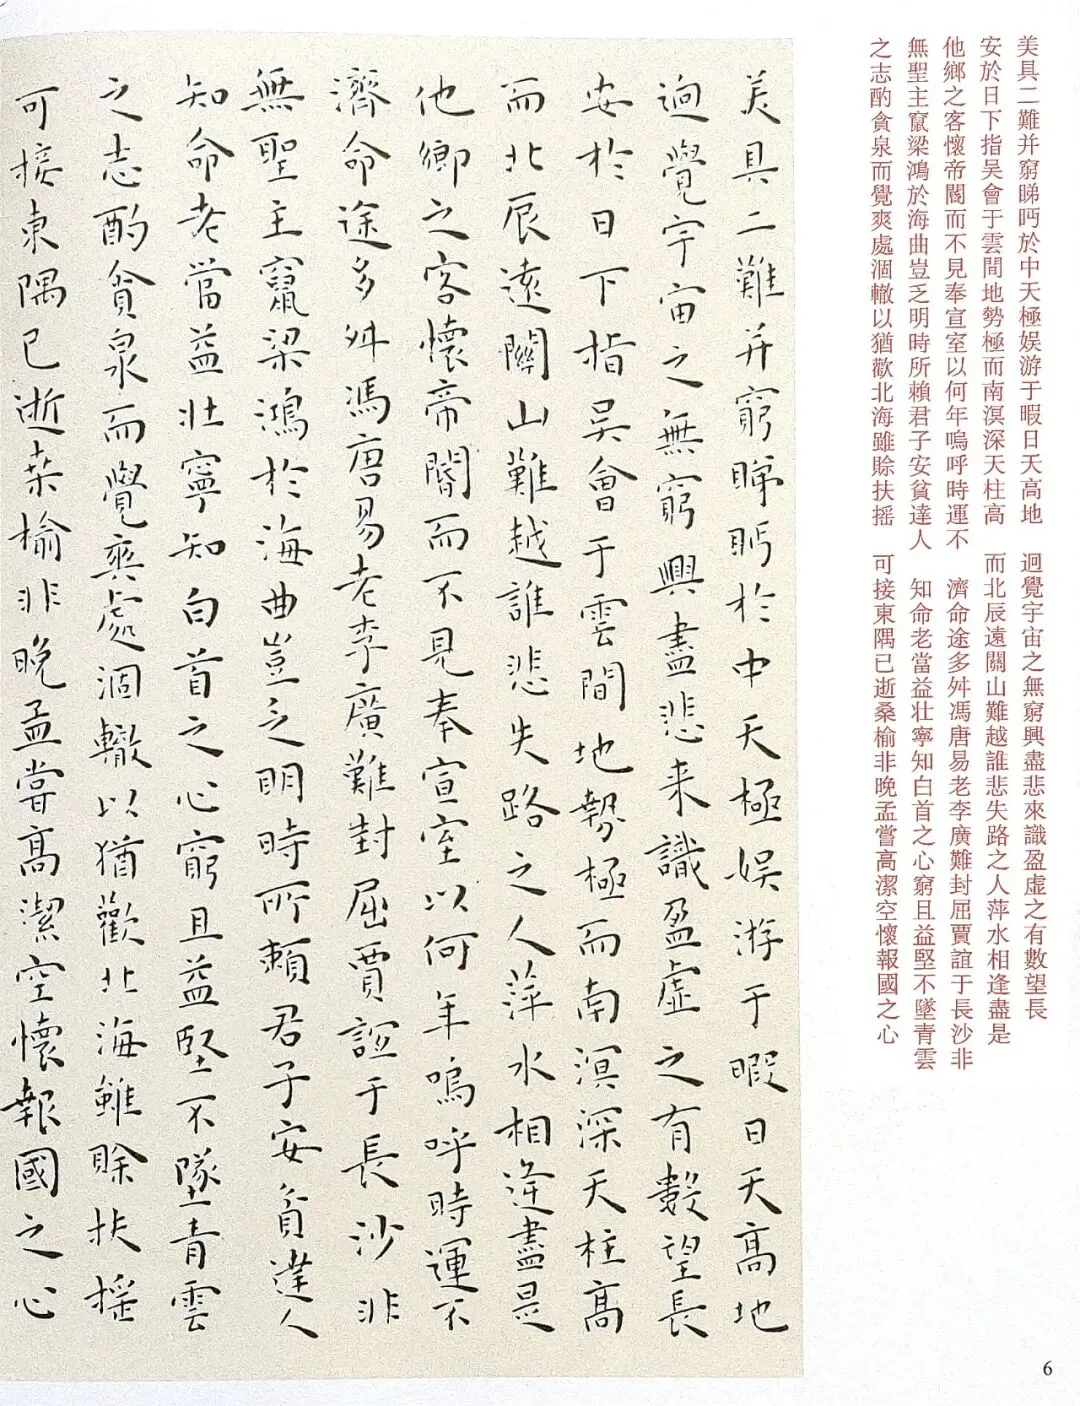 美具二難并窮睇眄於中天極娱游于暇日天高地　迥覺宇宙之無窮興盡悲來識盈虛之有數望長
安於日下指吴會于雲間地勢極而南溟深天柱高　而北辰遠關山難越誰悲失路之人萍水相逢盡是
他鄉之客懷帝閽而不見奉宣室以何年嗚呼時運不　濟命途多舛馮唐易老李廣難封屈賈誼于長沙非
無聖主竄梁鴻於海曲豈乏明時所賴君子安貧達人　知命老當益壮寧知白首之心窮且益堅不墜青雲
之志酌貪泉而覺爽處涸轍以猶歡北海雖賒扶摇　可接東隅已逝桑榆非晚孟嘗高潔空懷報國之心
美具二難并窮睇眄於中天極娱游于暇日天高地
迥覺宇宙之無窮興盡悲来識盈虛之有數望長
安於日下指吴會于雲間地勢極而南溟深天柱高
而北辰遠關山難越誰悲失路之人萍水相逢盡是
他鄉之客懷帝閽而不見奉宣室以何年嗚呼時運不
濟命途多舛馮唐易老李廣難封屈賈誼于長沙非
無聖主竄梁鴻於海曲豈乏明時所賴君子安貧達人
知命老當益壮寧知白首之心窮且益堅不墜青雲
之志酌貪泉而覺爽處涸轍以猶歡北海雖賒扶摇
可接東隅已逝桒榆非晚孟嘗高潔空懷報國之心
6